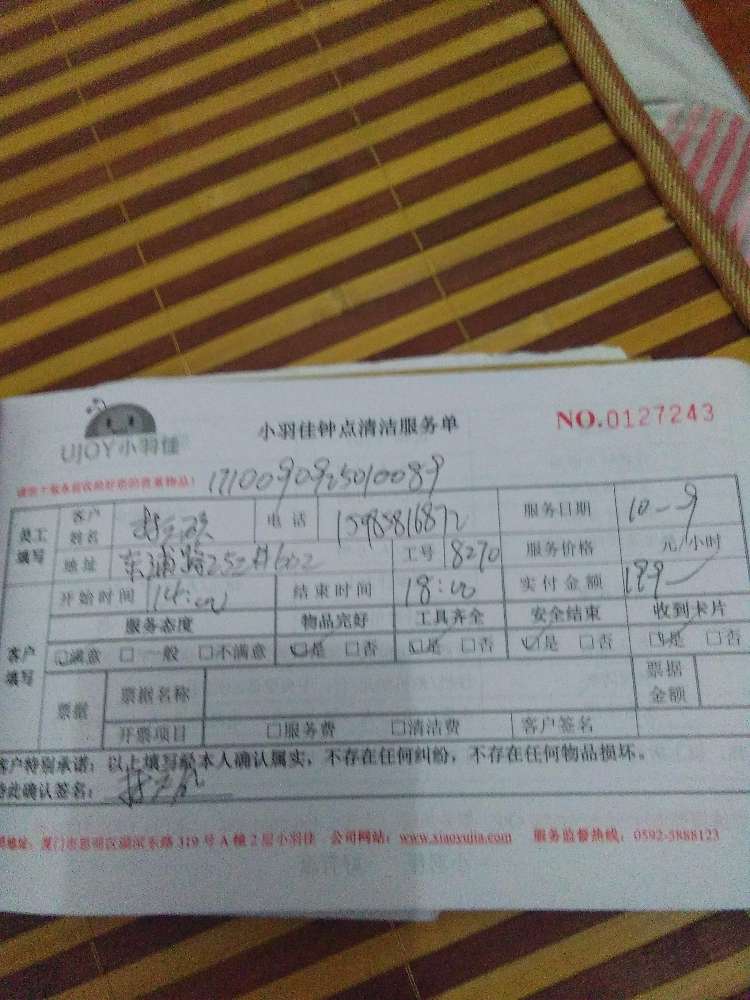 UJOY小羽佳
小羽佳钟点清洁服务单
NO.0127243
1710090925010089
员工填写 客户姓名 电话 15985816872 服务日期 10-9
地址 东浦路252#602 工号 8270 服务价格 元/小时
开始时间 14:00 结束时间 18:00 实付金额
客户填写 服务态度 物品完好 工具齐全 安全结束 收到卡片
☑满意 □一般 □不满意 ☑是 □否 ☑是 □否 ☑是 □否 ☑是 □否
票据 票据名称 票据金额
开票项目 □服务费 □清洁费 客户签名
客户特别承诺：以上填写经本人确认属实，不存在任何纠纷，不存在任何物品损坏。
特此确认签名：
地址：厦门市思明区湖滨东路319号A幢2层小羽佳 公司网站：www.xiaoyujia.com 服务监督热线：0592-5888123